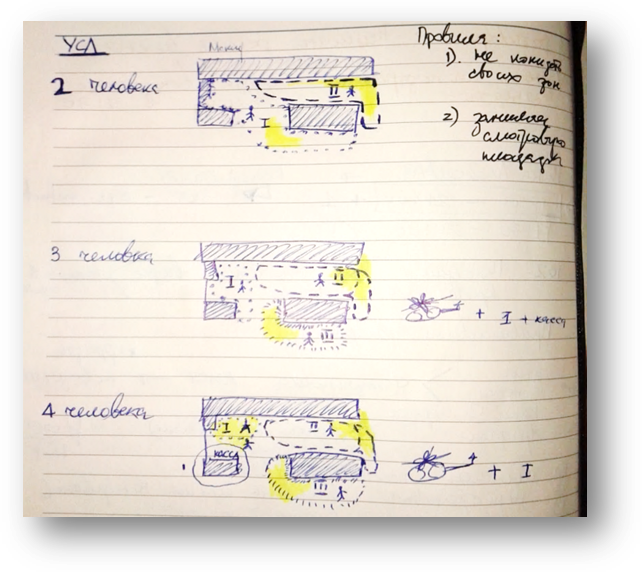 УСЛ
Правила:
1). не покидать
своих зон
2) занимать
смотровую
площадку
2 человека
II
I
3 человка
I
II
III
+ I + касса
4 человека
I
II
касса
III
+ I